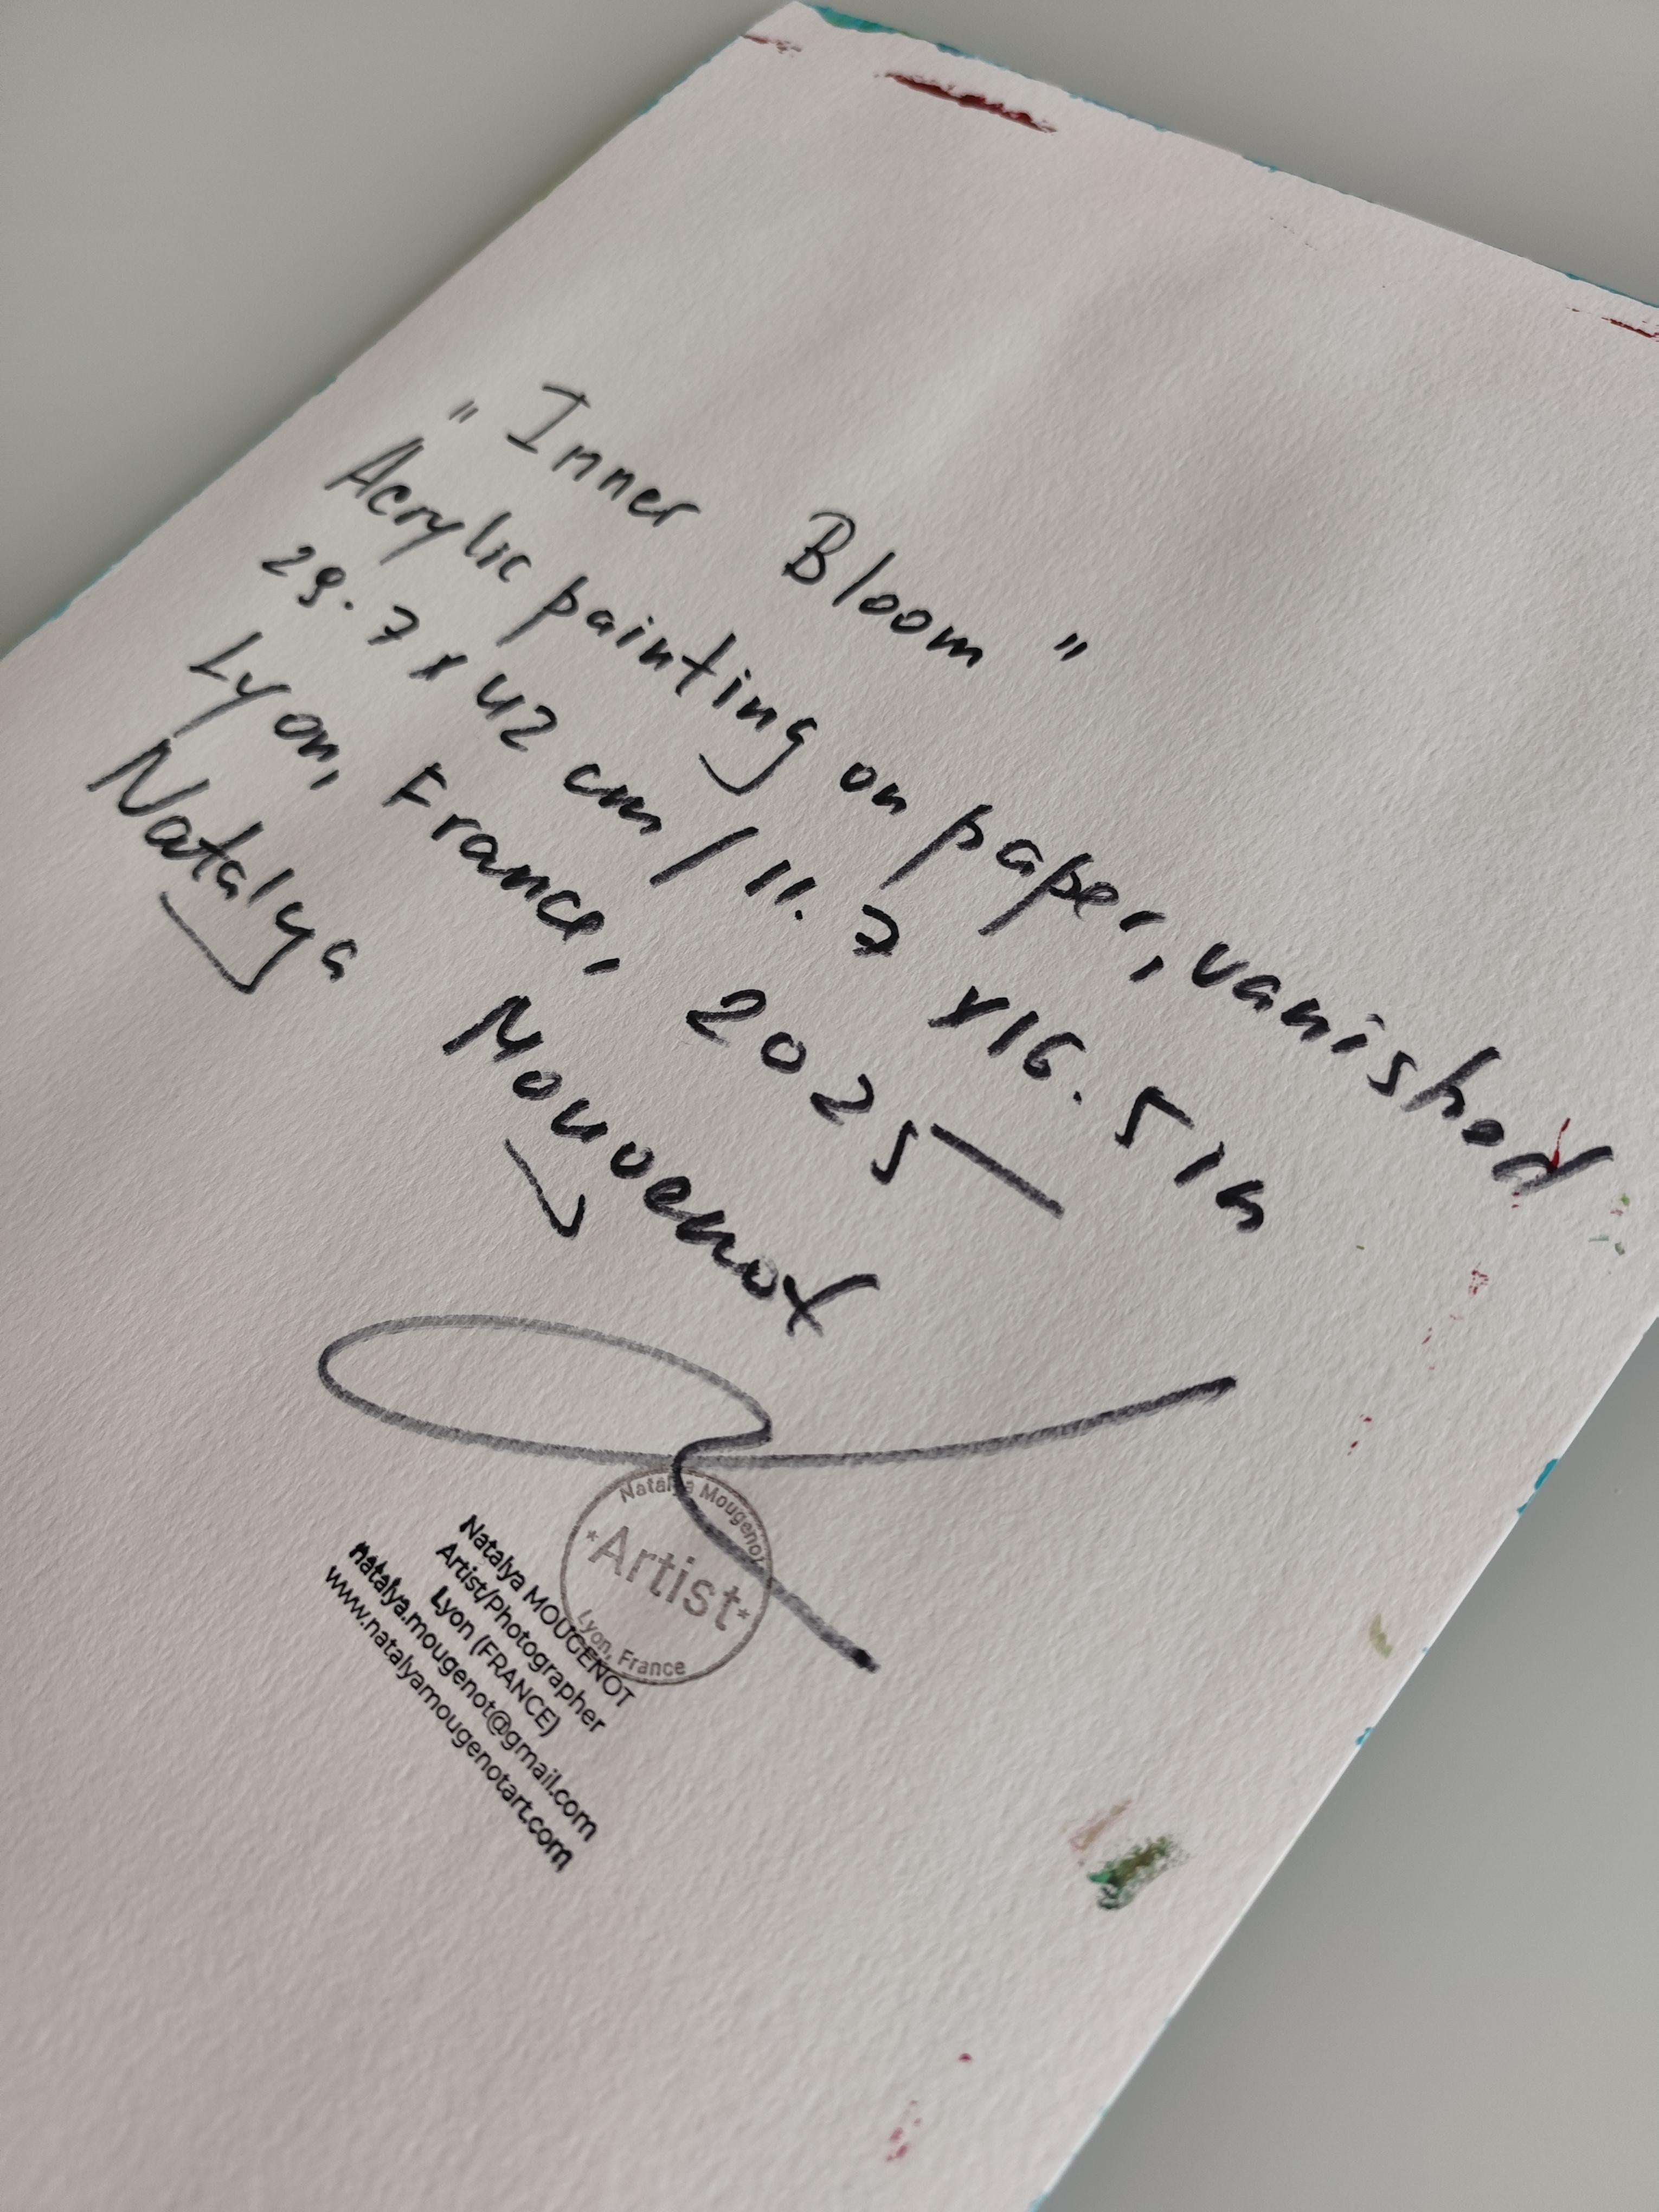 "Inner Bloom"
Acrylic painting on paper, vanished
29.7 x 42 cm / 11.7 x 16.5 in
Lyon, France, 2025
Natalya Mougenot
Natalya Mougenot
*Artist*
Lyon, France
Natalya MOUGENOT
Artist/Photographer
Lyon (FRANCE)
natalya.mougenot@gmail.com
www.natalyamougenotart.com